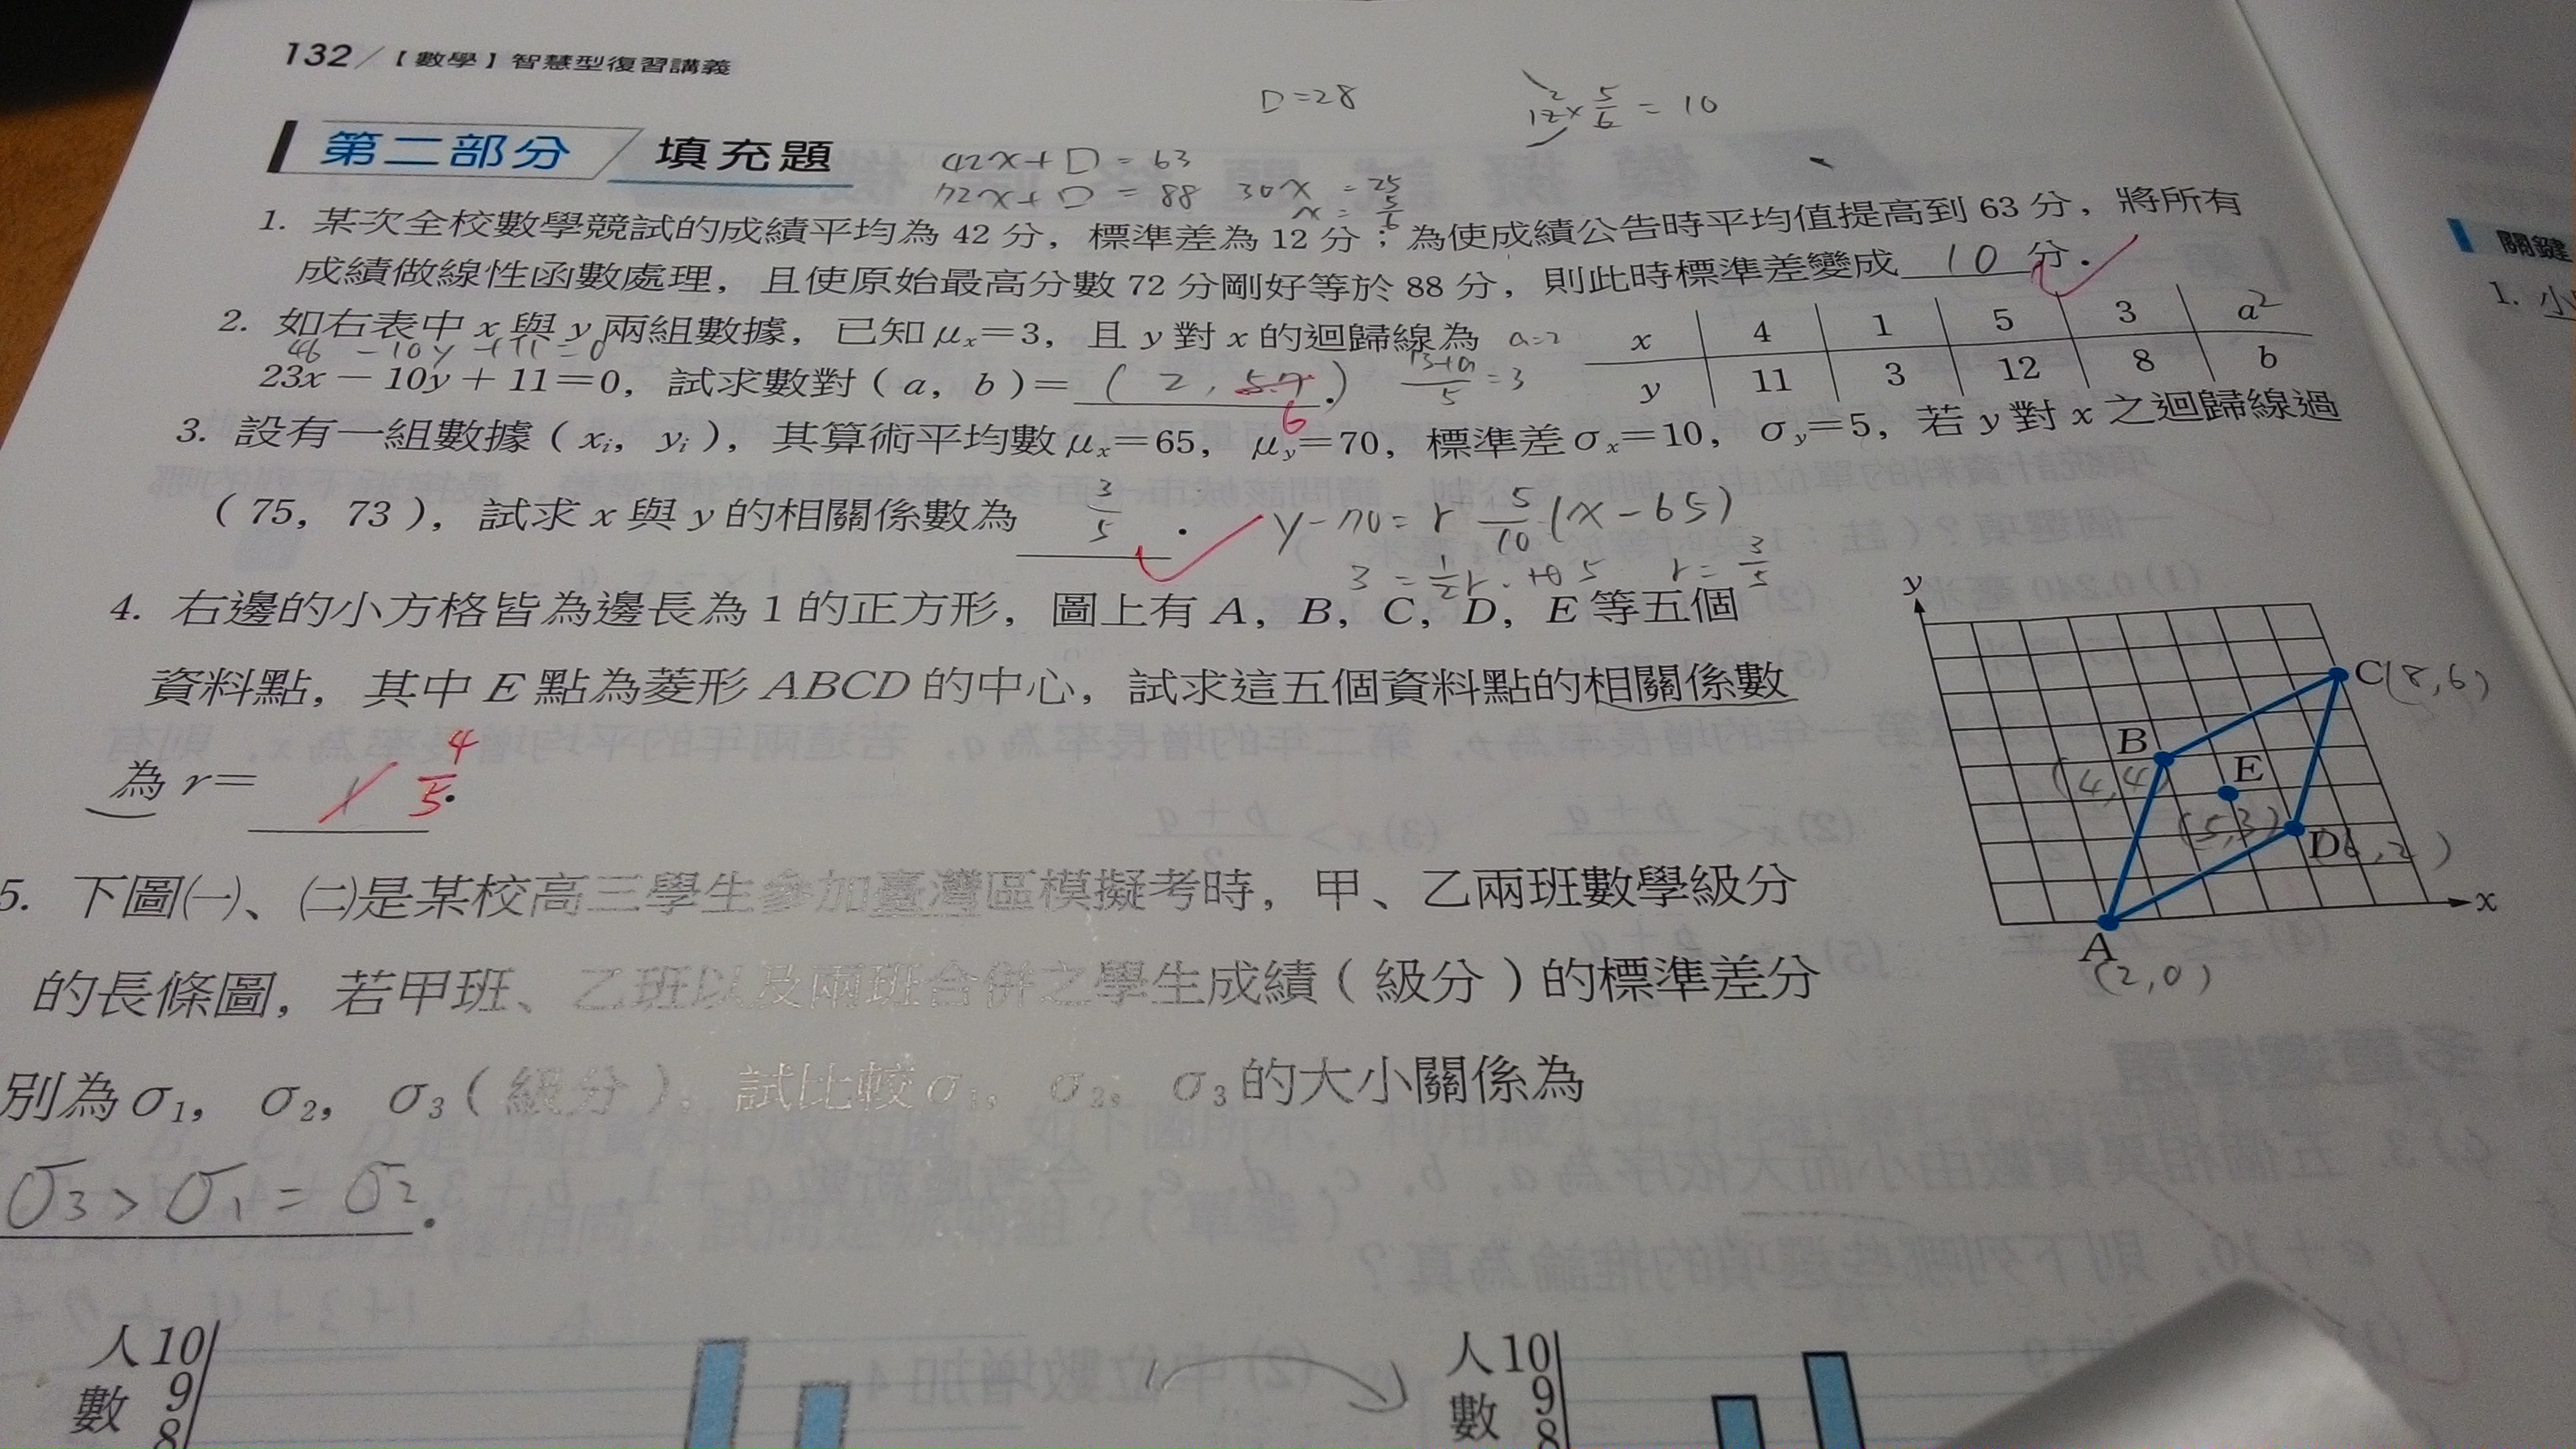 132／【數學】智慧型復習講義
D=28
12×5/6=10
2
第二部分 填充題
42x+D=63
72x+D=88 30x=25
x=5/6
1. 某次全校數學競試的成績平均為 42 分，標準差為 12 分；為使成績公告時平均值提高到 63 分，將所有
成績做線性函數處理，且使原始最高分數 72 分剛好等於 88 分，則此時標準差變成 10 分．
2. 如右表中 x 與 y 兩組數據，已知 μx＝3，且 y 對 x 的迴歸線為 a=2
46 -10y +11=0
23x－10y＋11＝0，試求數對（a，b）＝ ( 2 , 5.7 )． 6
13+a/5=3
x 4 1 5 3 a²
y 11 3 12 8 b
3. 設有一組數據（xi，yi），其算術平均數 μx＝65，μy＝70，標準差 σx＝10，σy＝5，若 y 對 x 之迴歸線過
（75，73），試求 x 與 y 的相關係數為 3/5 ．
y-70=r 5/10(x-65)
r=3/5
4. 右邊的小方格皆為邊長為 1 的正方形，圖上有 A，B，C，D，E 等五個
資料點，其中 E 點為菱形 ABCD 的中心，試求這五個資料點的相關係數
為 r＝ 1 4/5．
y
C(8,6)
B
(4,4)
E
(5,3)
D(6,2)
x
A
(2,0)
5. 下圖㈠、㈡是某校高三學生參加臺灣區模擬考時，甲、乙兩班數學級分
的長條圖，若甲班、乙班以及兩班合併之學生成績（級分）的標準差分
別為 σ1，σ2，σ3（級分），試比較 σ1，σ2，σ3 的大小關係為
σ3 > σ1 = σ2．
人數
10
9
8
人數
10
9
8
關鍵
1. 小